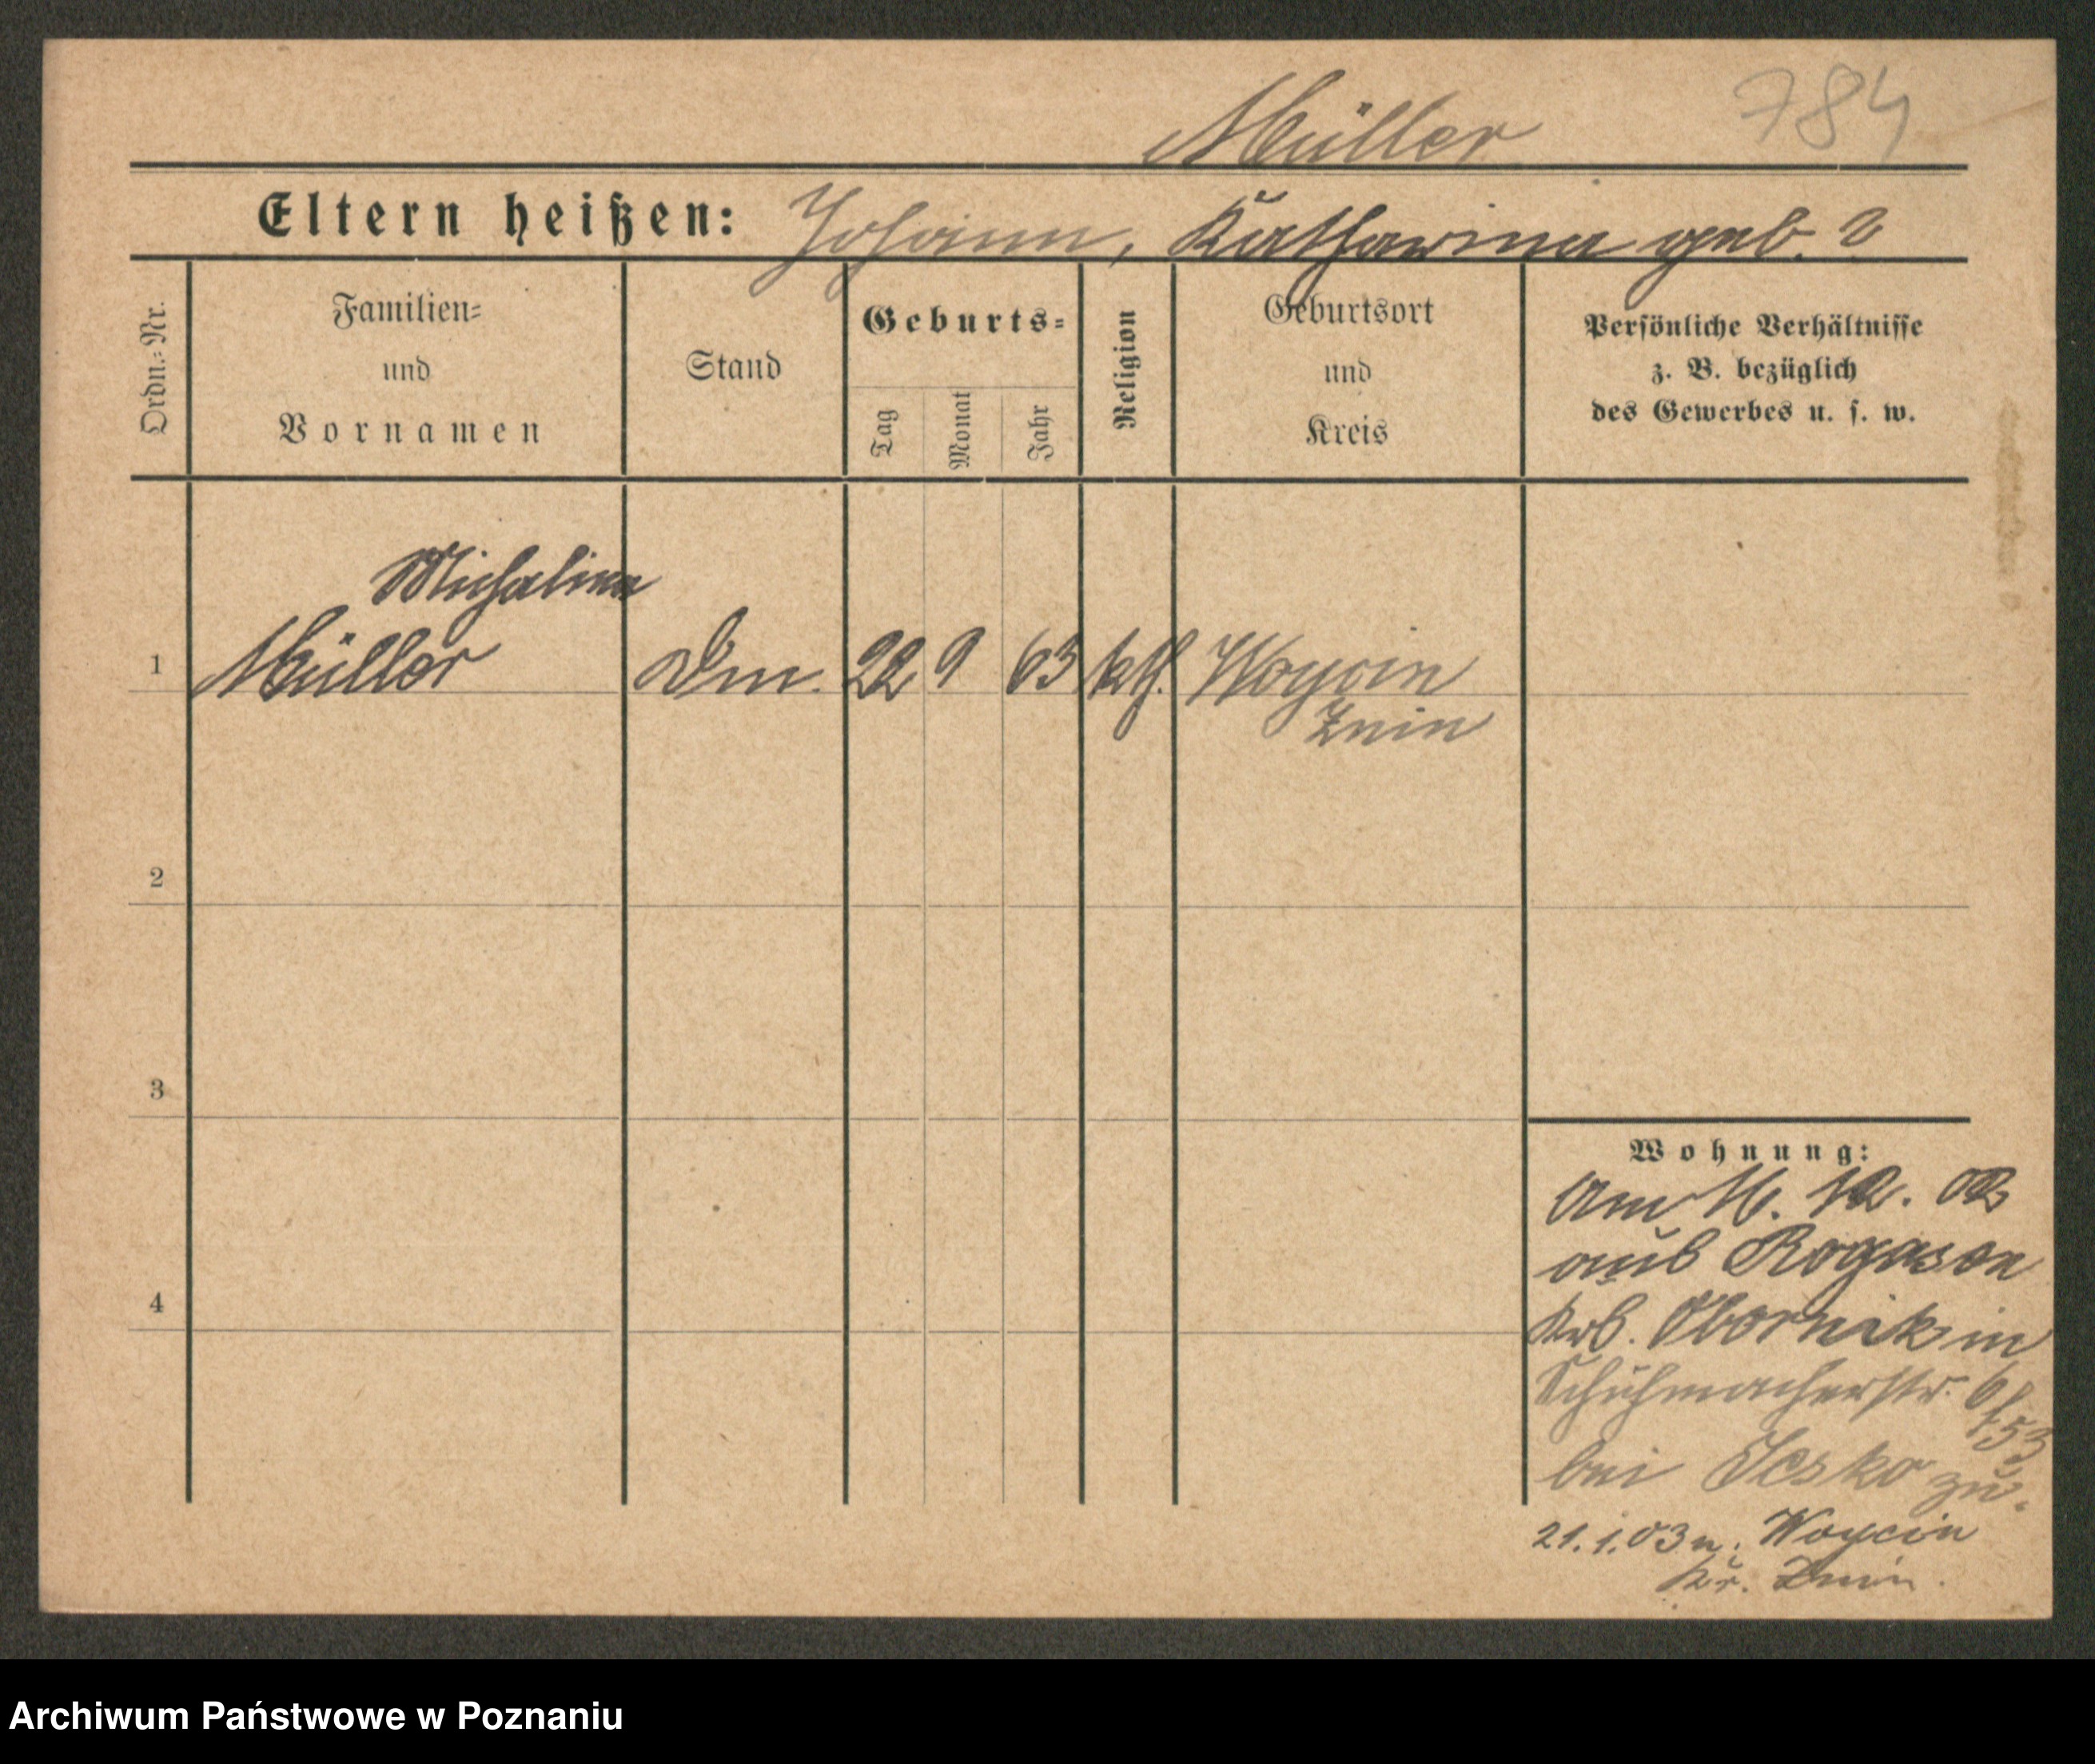 784
Müller
Eltern heißen: Johann, Katharina geb. ?
Ordn.-Nr.
Familien-
und
Vornamen
Stand
Geburts-
Tag
Monat
Jahr
Religion
Geburtsort
und
Kreis
Persönliche Verhältnisse
z. B. bezüglich
des Gewerbes u. s. w.
Michalina
1 Müller 22 9 63 kth. Woycin
Znin
2
3
4
Wohnung:
am 16. 12. 02
aus Rogasen
Krs. Obornik in
Schuhmacherstr. 6
bei zu.
21. 1. 03 n. Woycin
Kr. Znin.
Archiwum Państwowe w Poznaniu